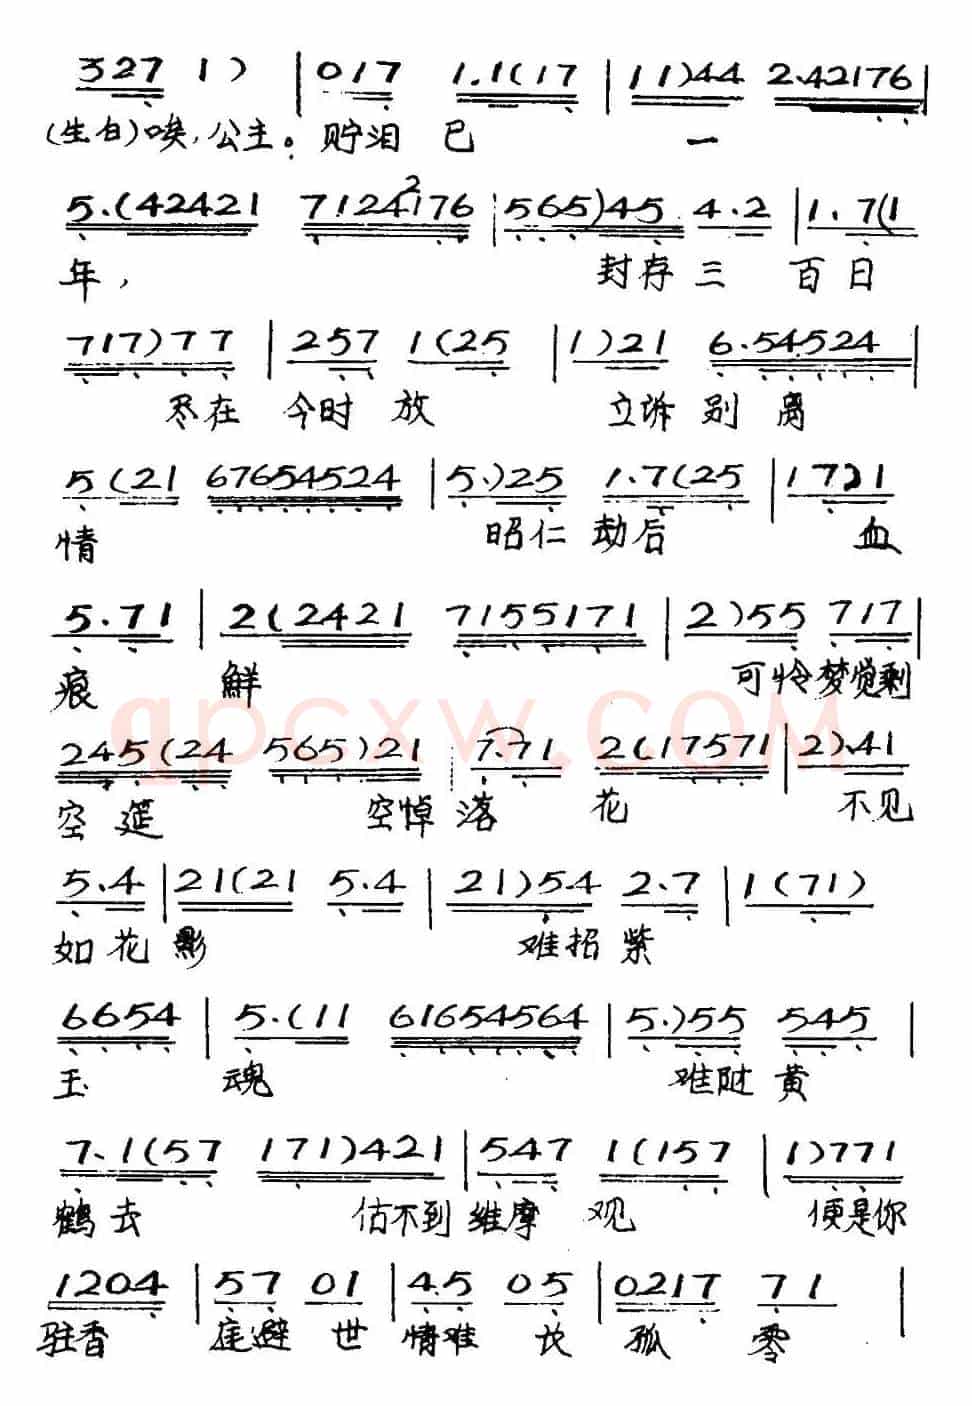 327 1) | 017 1.1(17 | 11)44 2.42176 |
(生白)唉,公主。贮泪已 一
5.(42421 71242176 | 565)45 4.2 | 1.7(1
年, 封存三 百日
717)77 | 257 1(25 | 1)21 6.54524 |
尽在 今时放 立诉别离
5(21 67654524 | 5.)25 1.7(25 | 1721
情 昭仁劫后 血
5.71 | 2(2421 7155171 | 2)55 717 |
痕 鲜 可怜梦觉剩
245(24 565)21 | 7.71 2(17571 | 2).41
空筵 空悼落花 不见
5.4 | 21(21 5.4 | 21)54 2.7 | 1(71)
如花影 难招紫
6654 | 5.(11 61654564 | 5.)55 545 |
玉 魂 难随黄
7.1(57 171)421 | 547 1(157 | 1)771
鹤去 估不到维摩观 便是你
1204 | 57 01 | 4.5 05 | 0217 71 |
驻香 避世情难 孤零
qpcxw.com